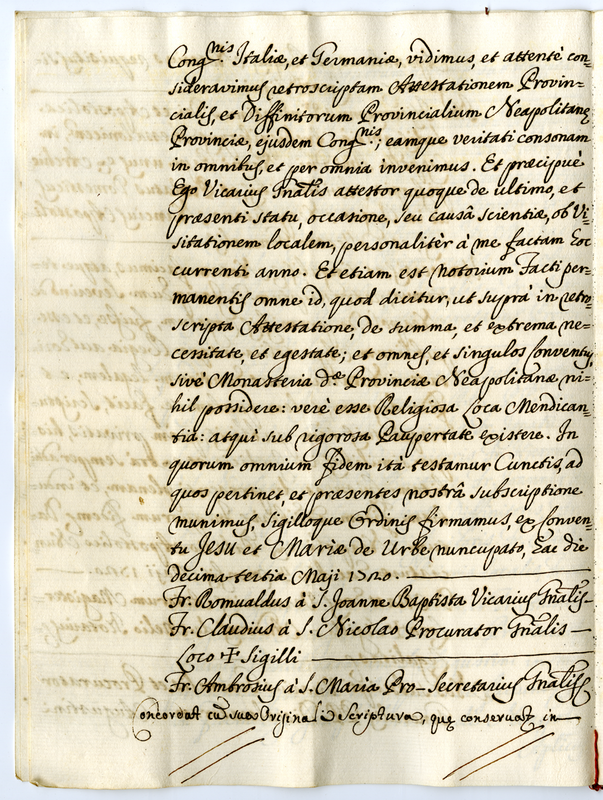 Cong.nis Italiæ, et Germaniæ, vidimus, et attentè con=
sideravimus retroscriptam Attestationem Provin=
cialis, et Diffinitorum Provincialium Neapolitanę
Provinciæ, ejusdem Cong.nis; eamque veritati consonam
in omnibus, et per omnia invenimus. Et præcipuè
Ego Vicarius Gnãlis attestor quoque de ultimo, et
præsenti statu, occasione, seu causâ scientiæ, ob Vi=
sitationem localem, personalitèr à me factam hoc
currenti anno. Et etiam est notorium Facti per=
manentis omne id, quod dicitur, ut suprà in retro=
scripta Attestatione, de summa, et extrema ne=
cessitate, et egestate; et omnes, et singulos Conventus,
sivè Monasteria d.æ Provinciæ Neapolitanæ ni=
hil possidere: verè esse Religiosa Loca Mendican=
tia: atqui sub rigorosa Paupertate existere. In
quorum omnium fidem ità testamur Cunctis, ad
quos pertinet, et præsentes nostrâ subscriptione
munimus, Sigilloque Ordinis firmamus, ex Conven=
tu Jesu et Mariæ de Urbe nuncupato, hac die
decima tertia Maji 1720.
Fr. Romualdus à S. Joanne Baptista Vicarius Gnãlis
Fr. Claudius à S. Nicolao Procurator Gnãlis
Loco ✝ Sigilli
Fr. Ambrosius à S. Maria Pro-Secretarius Gnãlis
Concordat cũ suo Originali Scriptura, quę conservat in